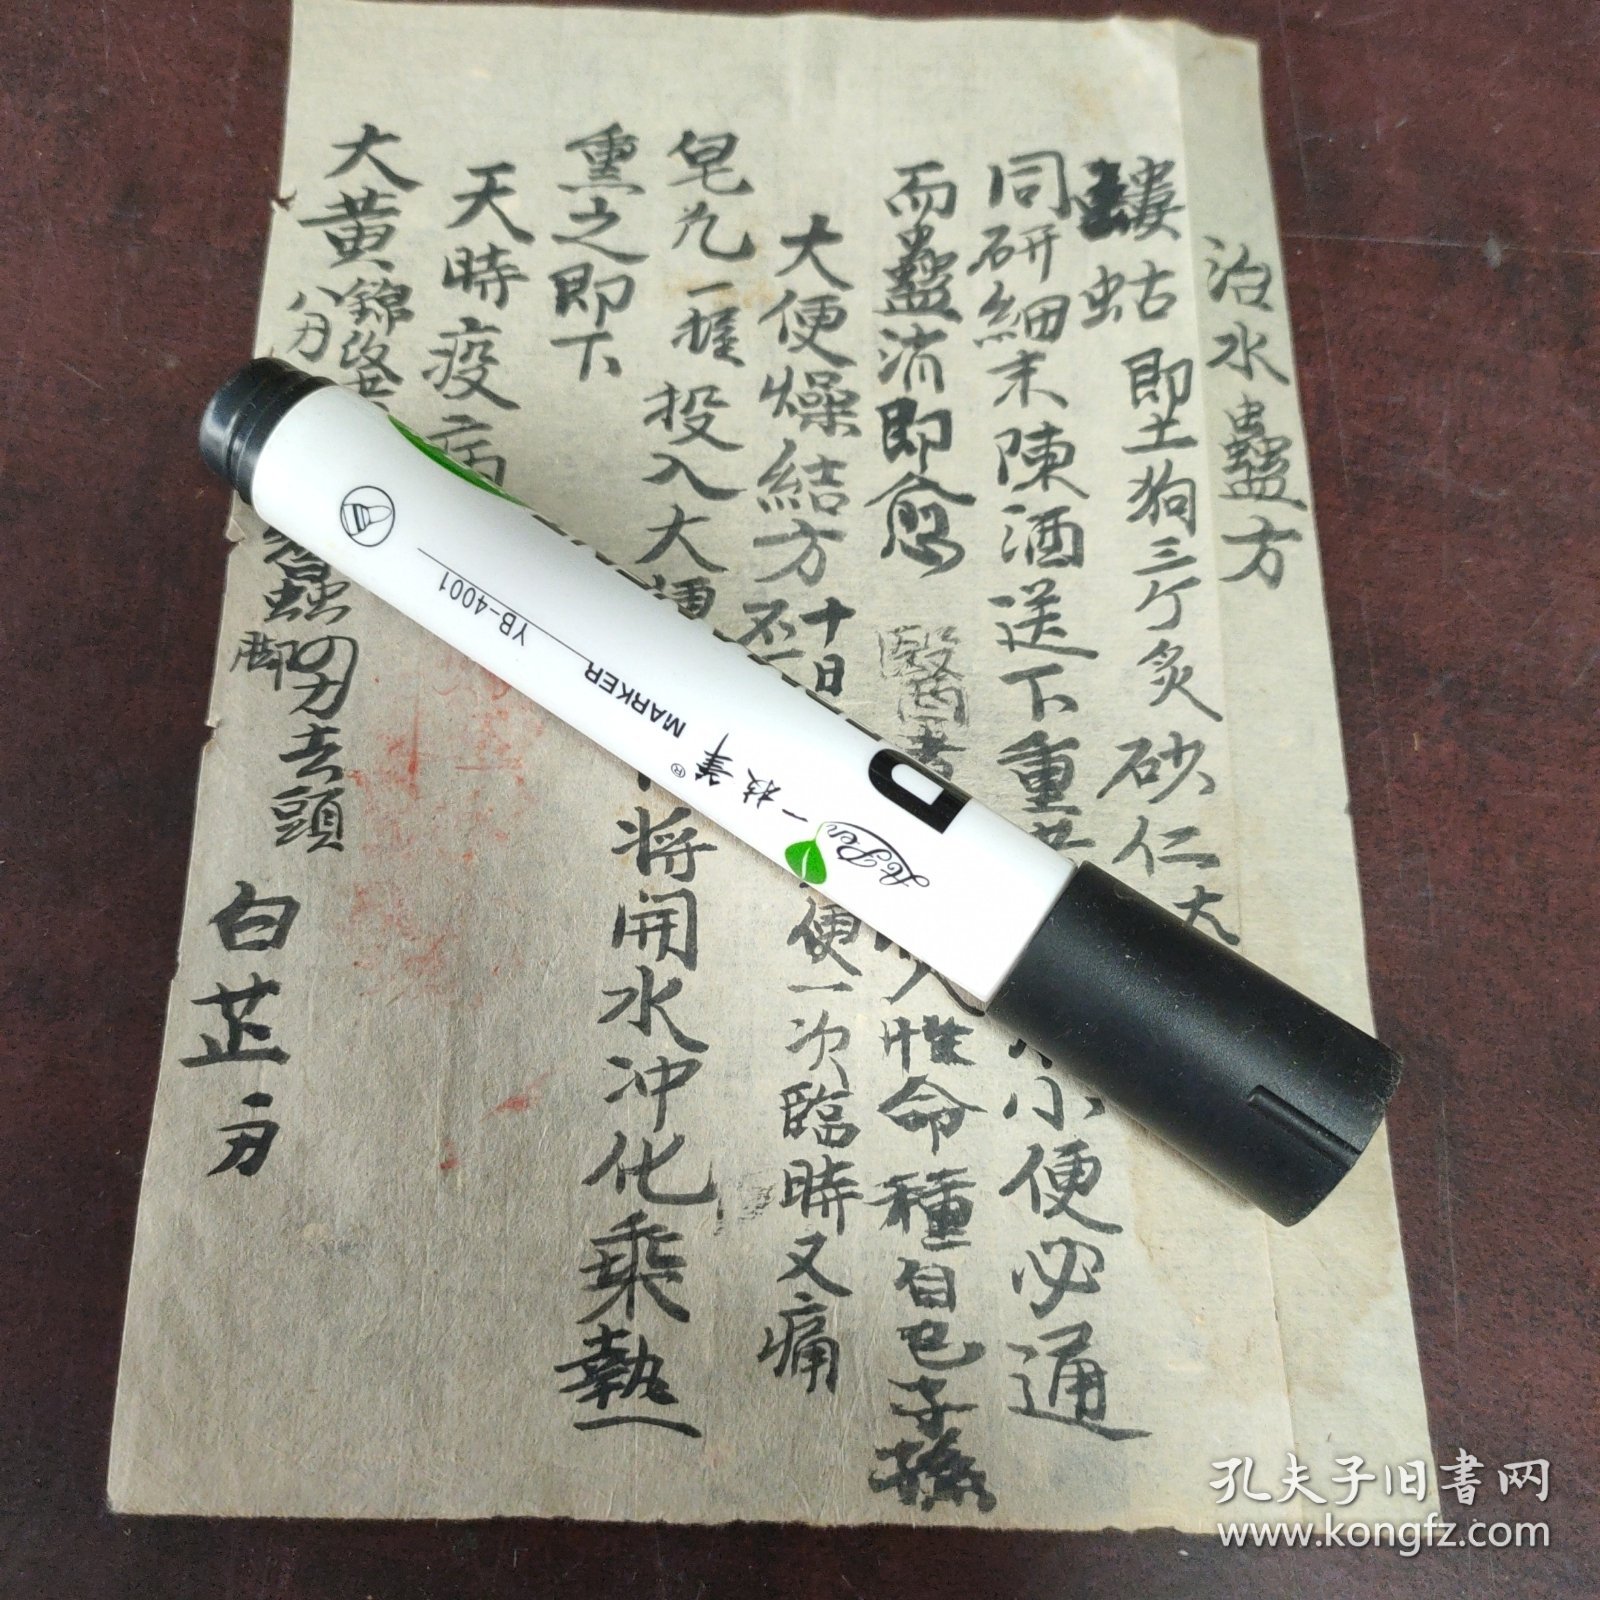 治水蠱方
螻蛄 即土狗三个炙 砂仁
同研細末陳酒送下重 小便必通
而蠱消即愈 醫 性命種自己子孫
大便燥結方 十日 便一次臨時又痛
皂九一握投入大 將開水冲化乘熱
熏之即下
天時疫病
大黃 錦 八分 蟲四分去頭 脚 白芷 分
一枝笔® MARKER
YB-4001
A Pen
孔夫子旧书网
www.kongfz.com